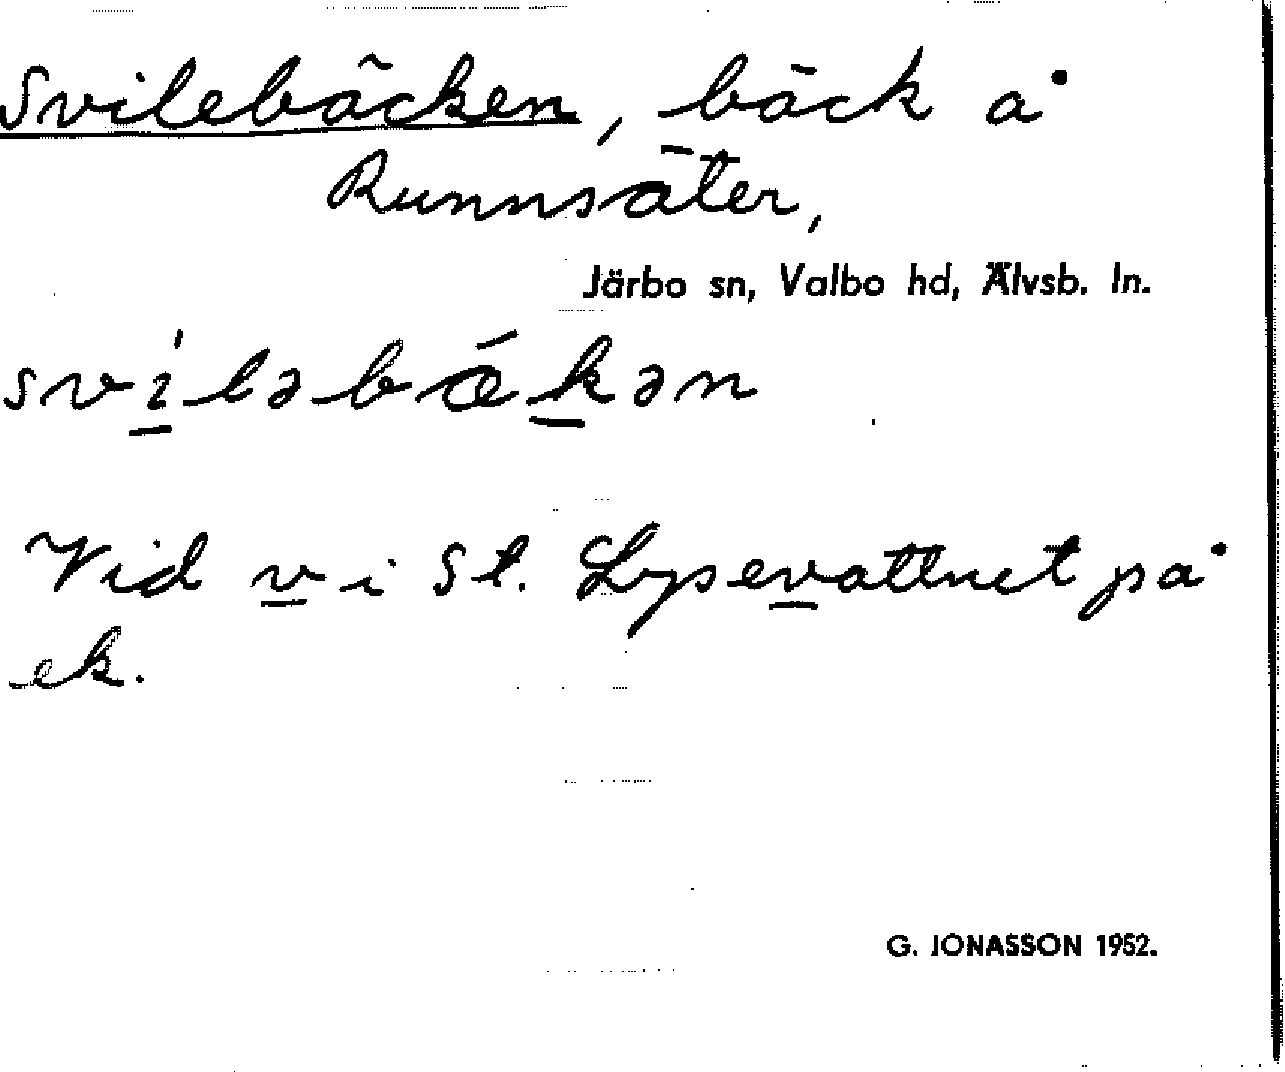 Svilebäcken, bäck å
Runnsäter,
Järbo sn, Valbo hd, Älvsb. ln.
svi̱ ́ləbǽḵən
Vid v̲ i St. Lysev̲attnet på
ek.
G. JONASSON 1952.